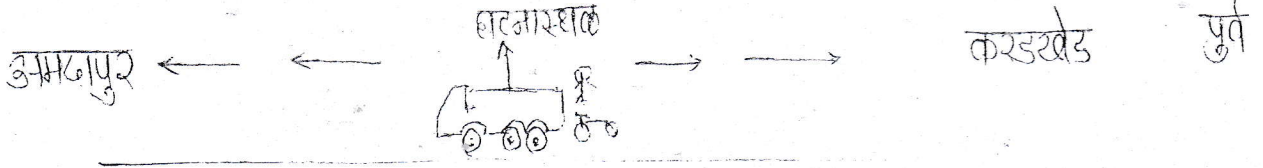 घटनास्थळ
अमदापुर
करडखेड
पुर्व